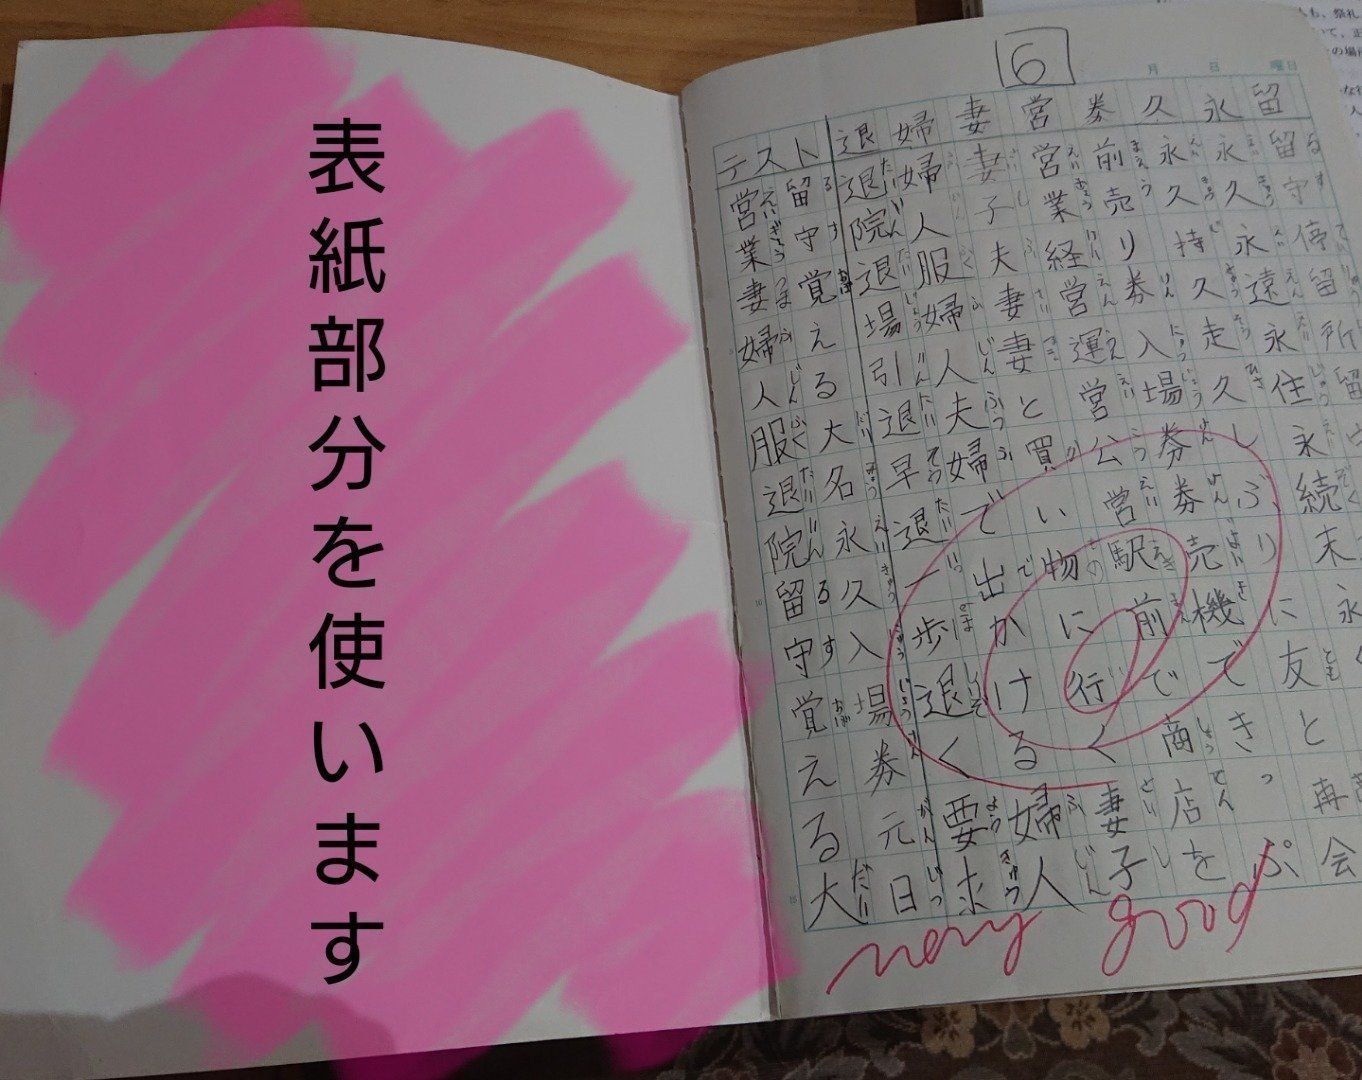 表紙部分を使います
6
月 日 曜日
留
留守停留所留
永
永久永遠永住永続末永く
久
永久持久久走久しぶりに友と再会
券
前売り券入場券券売機できっぷ
営
営業経営運営公営駅前で商店を
妻
妻子夫妻妻と買い物に行く妻子
婦
婦人服婦人夫婦で出かける婦人
退
退院退場引退早退一歩退く要求
テスト
留守覚える大名永久入場券元日
営業妻婦人服退院留守覚える大
very good